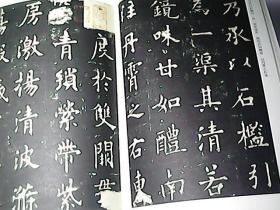 乃承以石檻引
為一渠其清若
鏡味甘如醴南
注丹霄之右東
度於雙闕
青瑣縈帶紫
房激揚清波滌